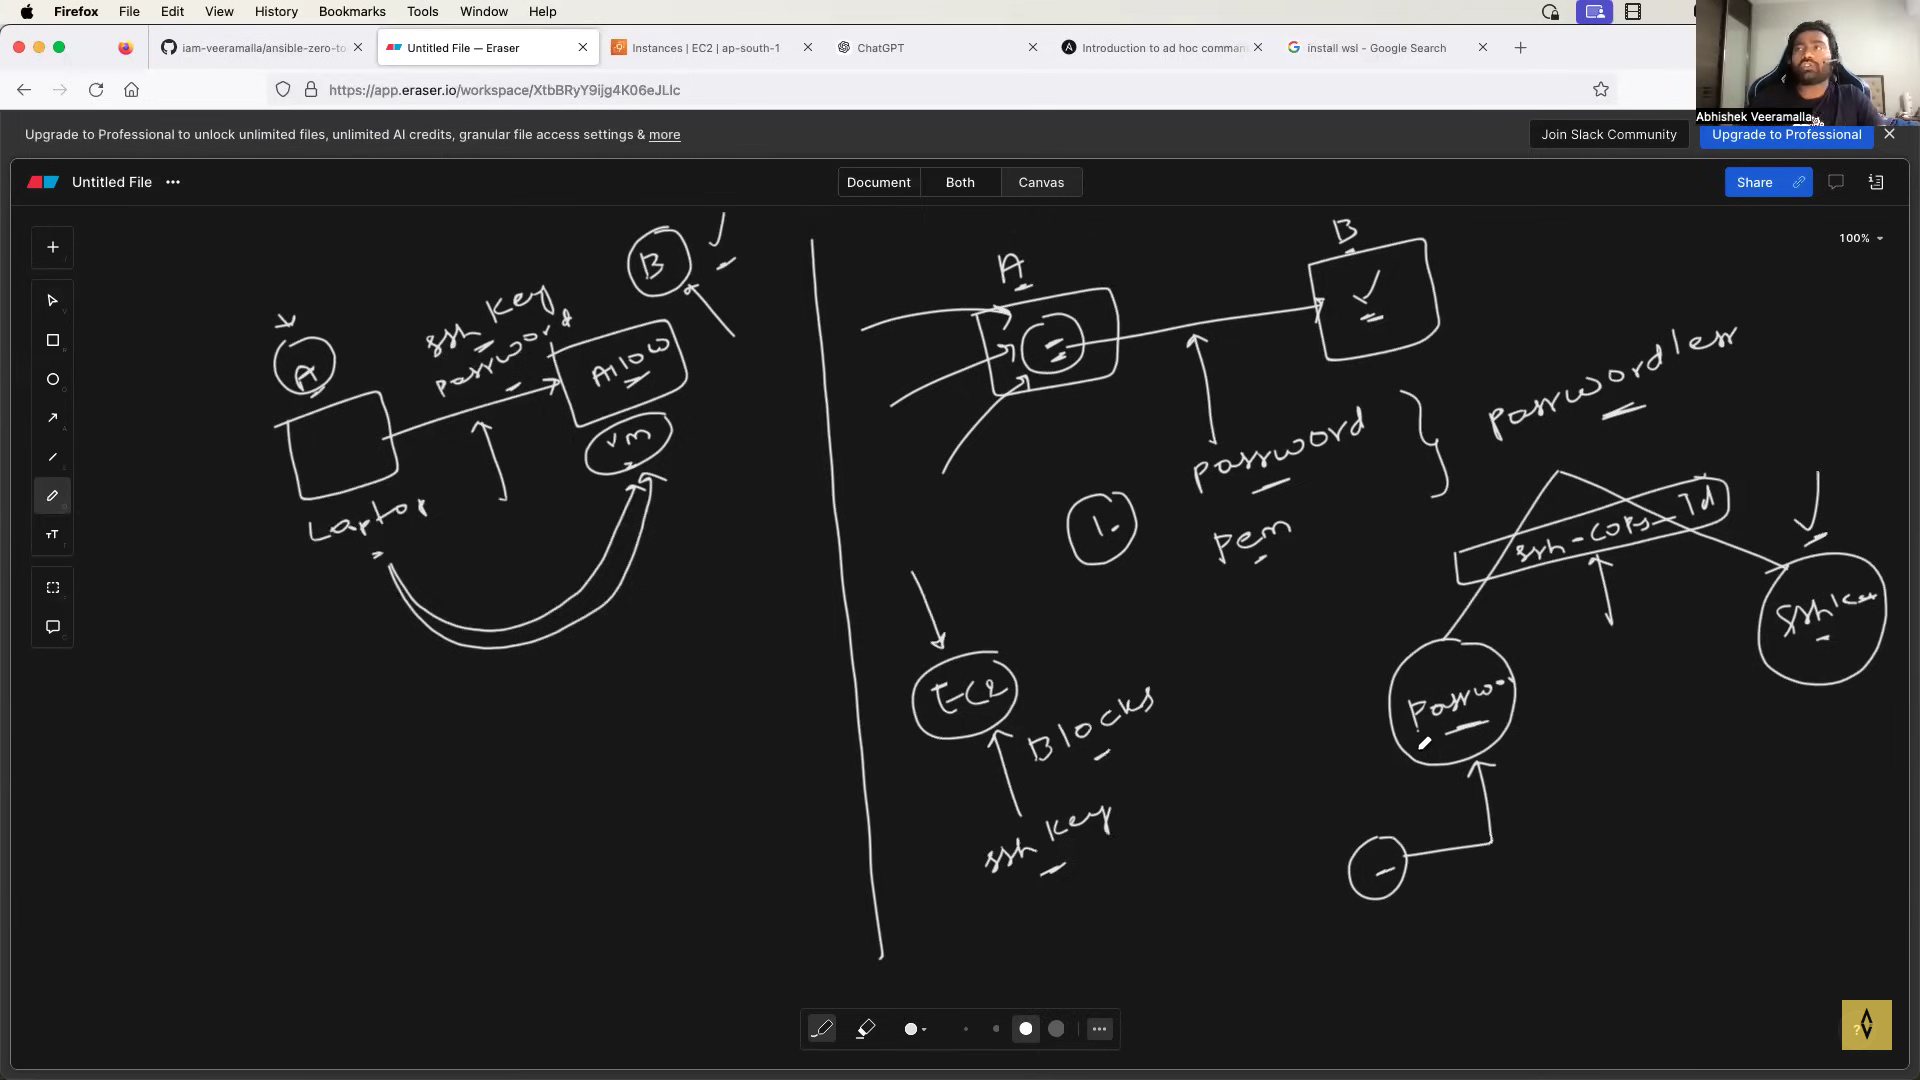 Firefox File Edit View History Bookmarks Tools Window Help
iam-veeramalla/ansible-zero-to
Untitled File — Eraser
Instances | EC2 | ap-south-1
ChatGPT
Introduction to ad hoc comman
install wsl - Google Search
https://app.eraser.io/workspace/XtbBRyY9ijg4K06eJLIc
Abhishek Veeramalla
Upgrade to Professional to unlock unlimited files, unlimited AI credits, granular file access settings & more
Join Slack Community
Upgrade to Professional
Untitled File
Document Both Canvas
Share
100%
B
A
ssh key
password
Allow
vm
Laptop
A
B
password
pem
passwordless
1.
ssh-copy-id
ssh key
EC2
Blocks
ssh key
Passwo